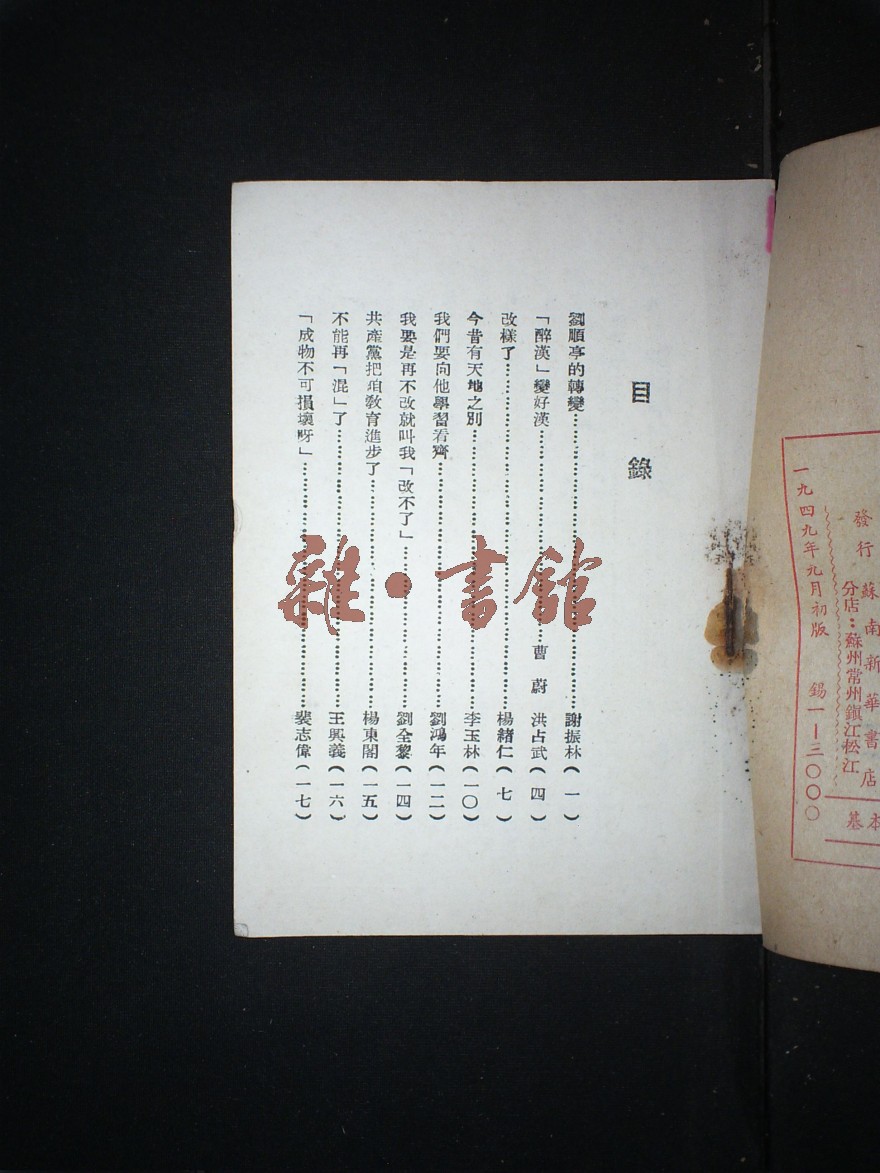 目錄
劉順亭的轉變……謝振林(一)
「醉漢」變好漢……曹蔚 洪占武(四)
改樣了……楊緒仁(七)
今昔有天地之別……李玉林(一〇)
我們要向他學習看齊……劉鴻年(一二)
我要是再不改就叫我「改不了」……劉全黎(一四)
共產黨把咱教育進步了……楊東閣(一五)
不能再「混」了……王興義(一六)
「成物不可損壞呀」……裴志偉(一七)
基本
發行 蘇南新華書店
分店:蘇州常州鎮江松江
一九四九年九月初版 錫一—三〇〇〇
雜·書館